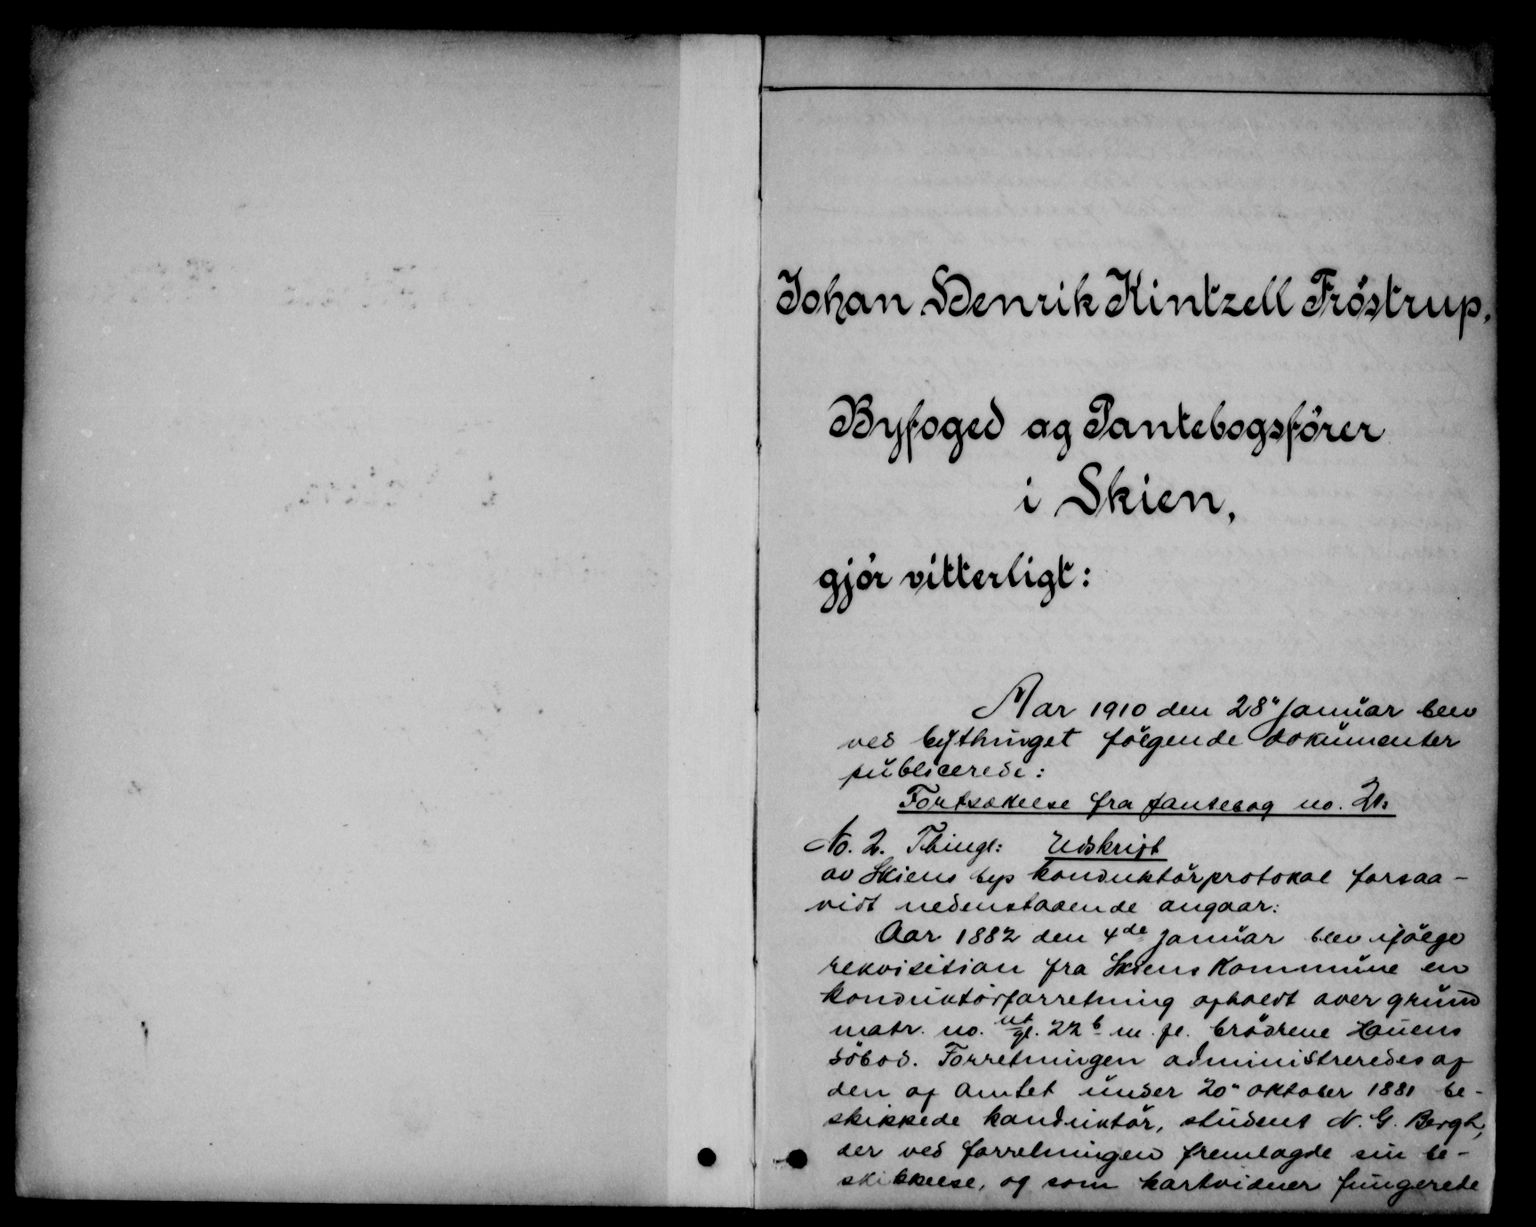 Johan Henrik Kintzell Fröstrup,
Byfoged og Pantebogsförer
i Skien,
gjör vitterligt:
Aar 1910 den 28" januar blev
ved bythinget fölgende dokumenter
publicerede:
Fortsættelse fra pantebog no. 21:
No. 2. Thingl: Udskrift
av Skiens bys konduktörprotokol forsaa-
vidt nedenstaaende angaar:
Aar 1882 den 4de januar blev ifölge
rekvisition fra Skiens Kommune en
konduktörforretning afholdt over grund
matr. no. gl. 22b m. fl. brödrene Houens
söbod. Forretningen administreredes af
den af Amtet under 20" oktober 1881 be-
skikkede konduktör, student N. G. Bergh,
der ved forretningen fremlagde sin be-
skikkelse, og som kartvidner fungerede